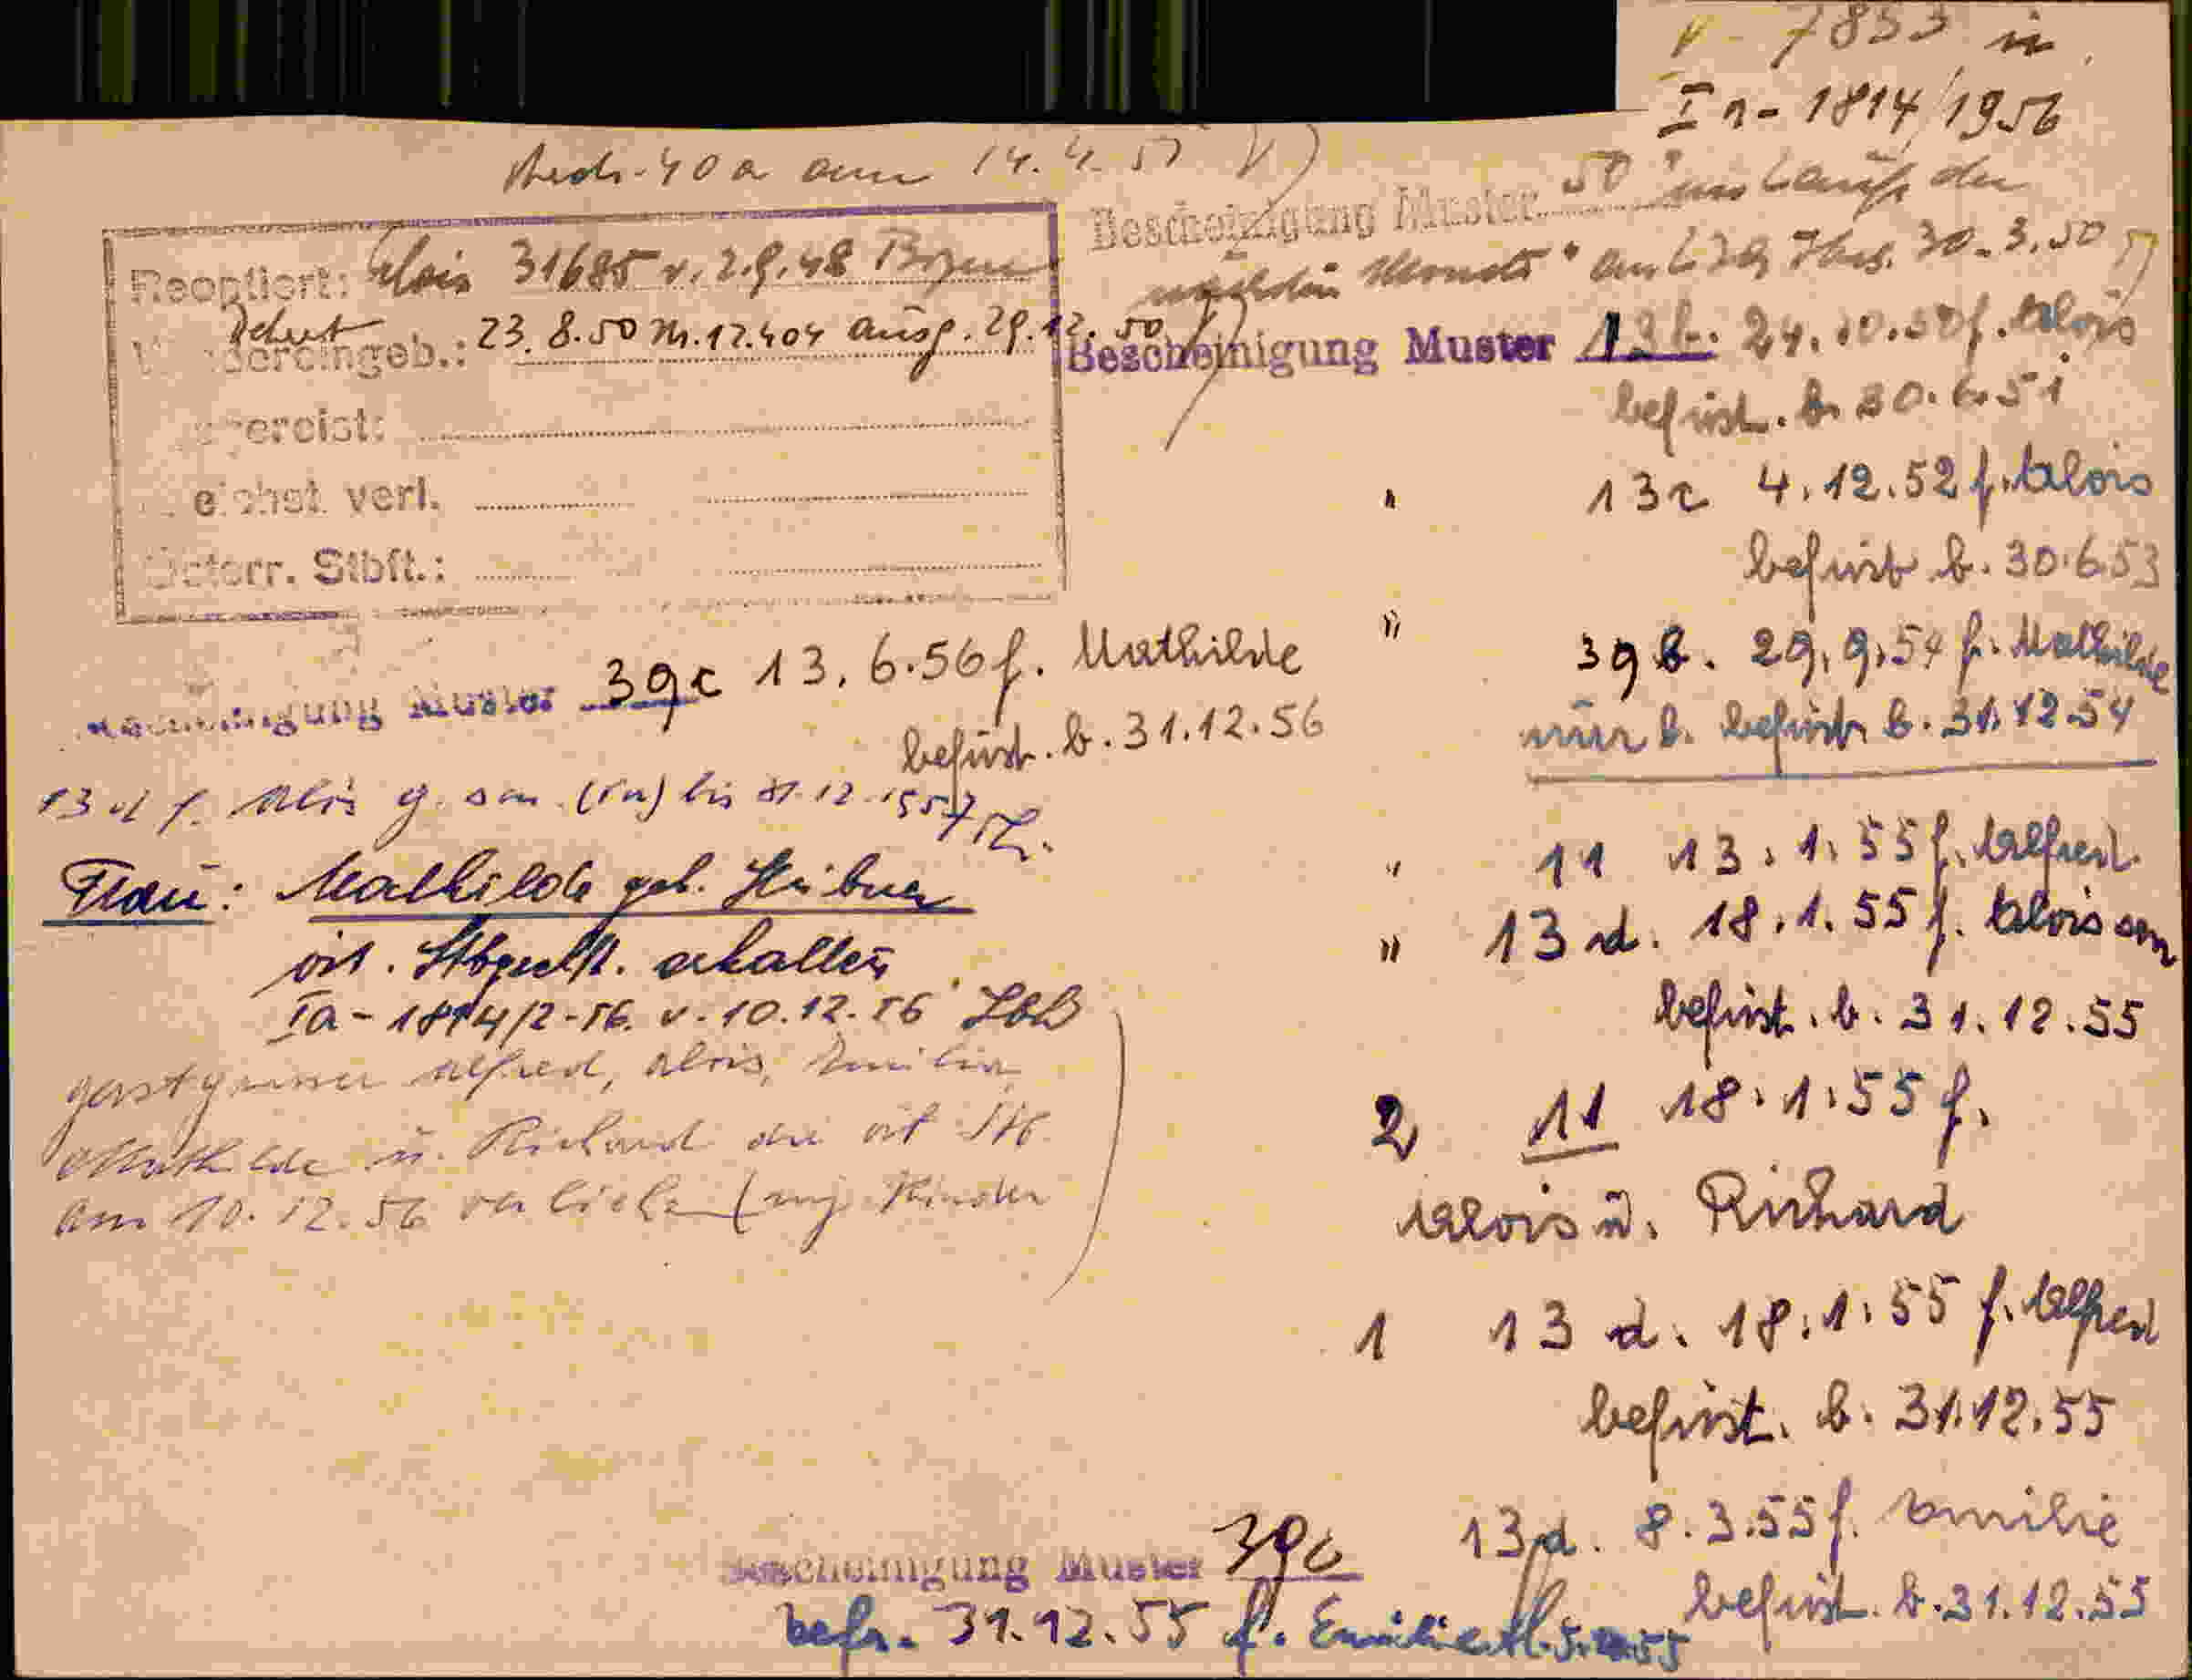 V - 7833 in
I a - 1814/1956
40 a am 14.4.57
Bescheinigung Muster 50 "im Laufe der
nächsten Monate" am 30.3.50
Reoptiert: Alois 31685 v. 2.9.48 Bozen
Dekret
Wiedereingeb.: 23.8.50 Nr. 12.404 ausg. 29.12.50
Bescheinigung Muster 13b. 24.10.50 f. Alois
befrist. b. 30.6.51
ereist:
eichst. verl.
Österr. Stbft.:
" 13c 4.12.52 f. Alois
befrist b. 30.6.53
" 39b. 29.9.54 f. Mathilde
nur b. befrist. b. 31.12.54
Bescheinigung Muster 39c 13.6.56 f. Mathilde
befrist. b. 31.12.56
13 d f. Alois g. sen. (Ia) bis 31.12.1957
Frau: Mathilde geb. Hübner
öst. erhalten
Ia - 1814/2-56. v. 10.12.56
Gostgunner Alfred, Alois, Emilia,
Mathilde u. Richard die öst Stb.
am 10.12.56 verliehen (mj Kinder
" 11 13.1.55 f. Alfred.
" 13 d. 18.1.55 f. Alois sen
befrist. b. 31.12.55
2 11 18.1.55 f.
Alois u. Richard
1 13 d. 18.1.55 f. Alfred
befrist. b. 31.12.55
13 d. 8.3.55 f. Emilie
befrist. b. 31.12.55
Bescheinigung Muster 39b
befr. 31.12.55 f. Emilie